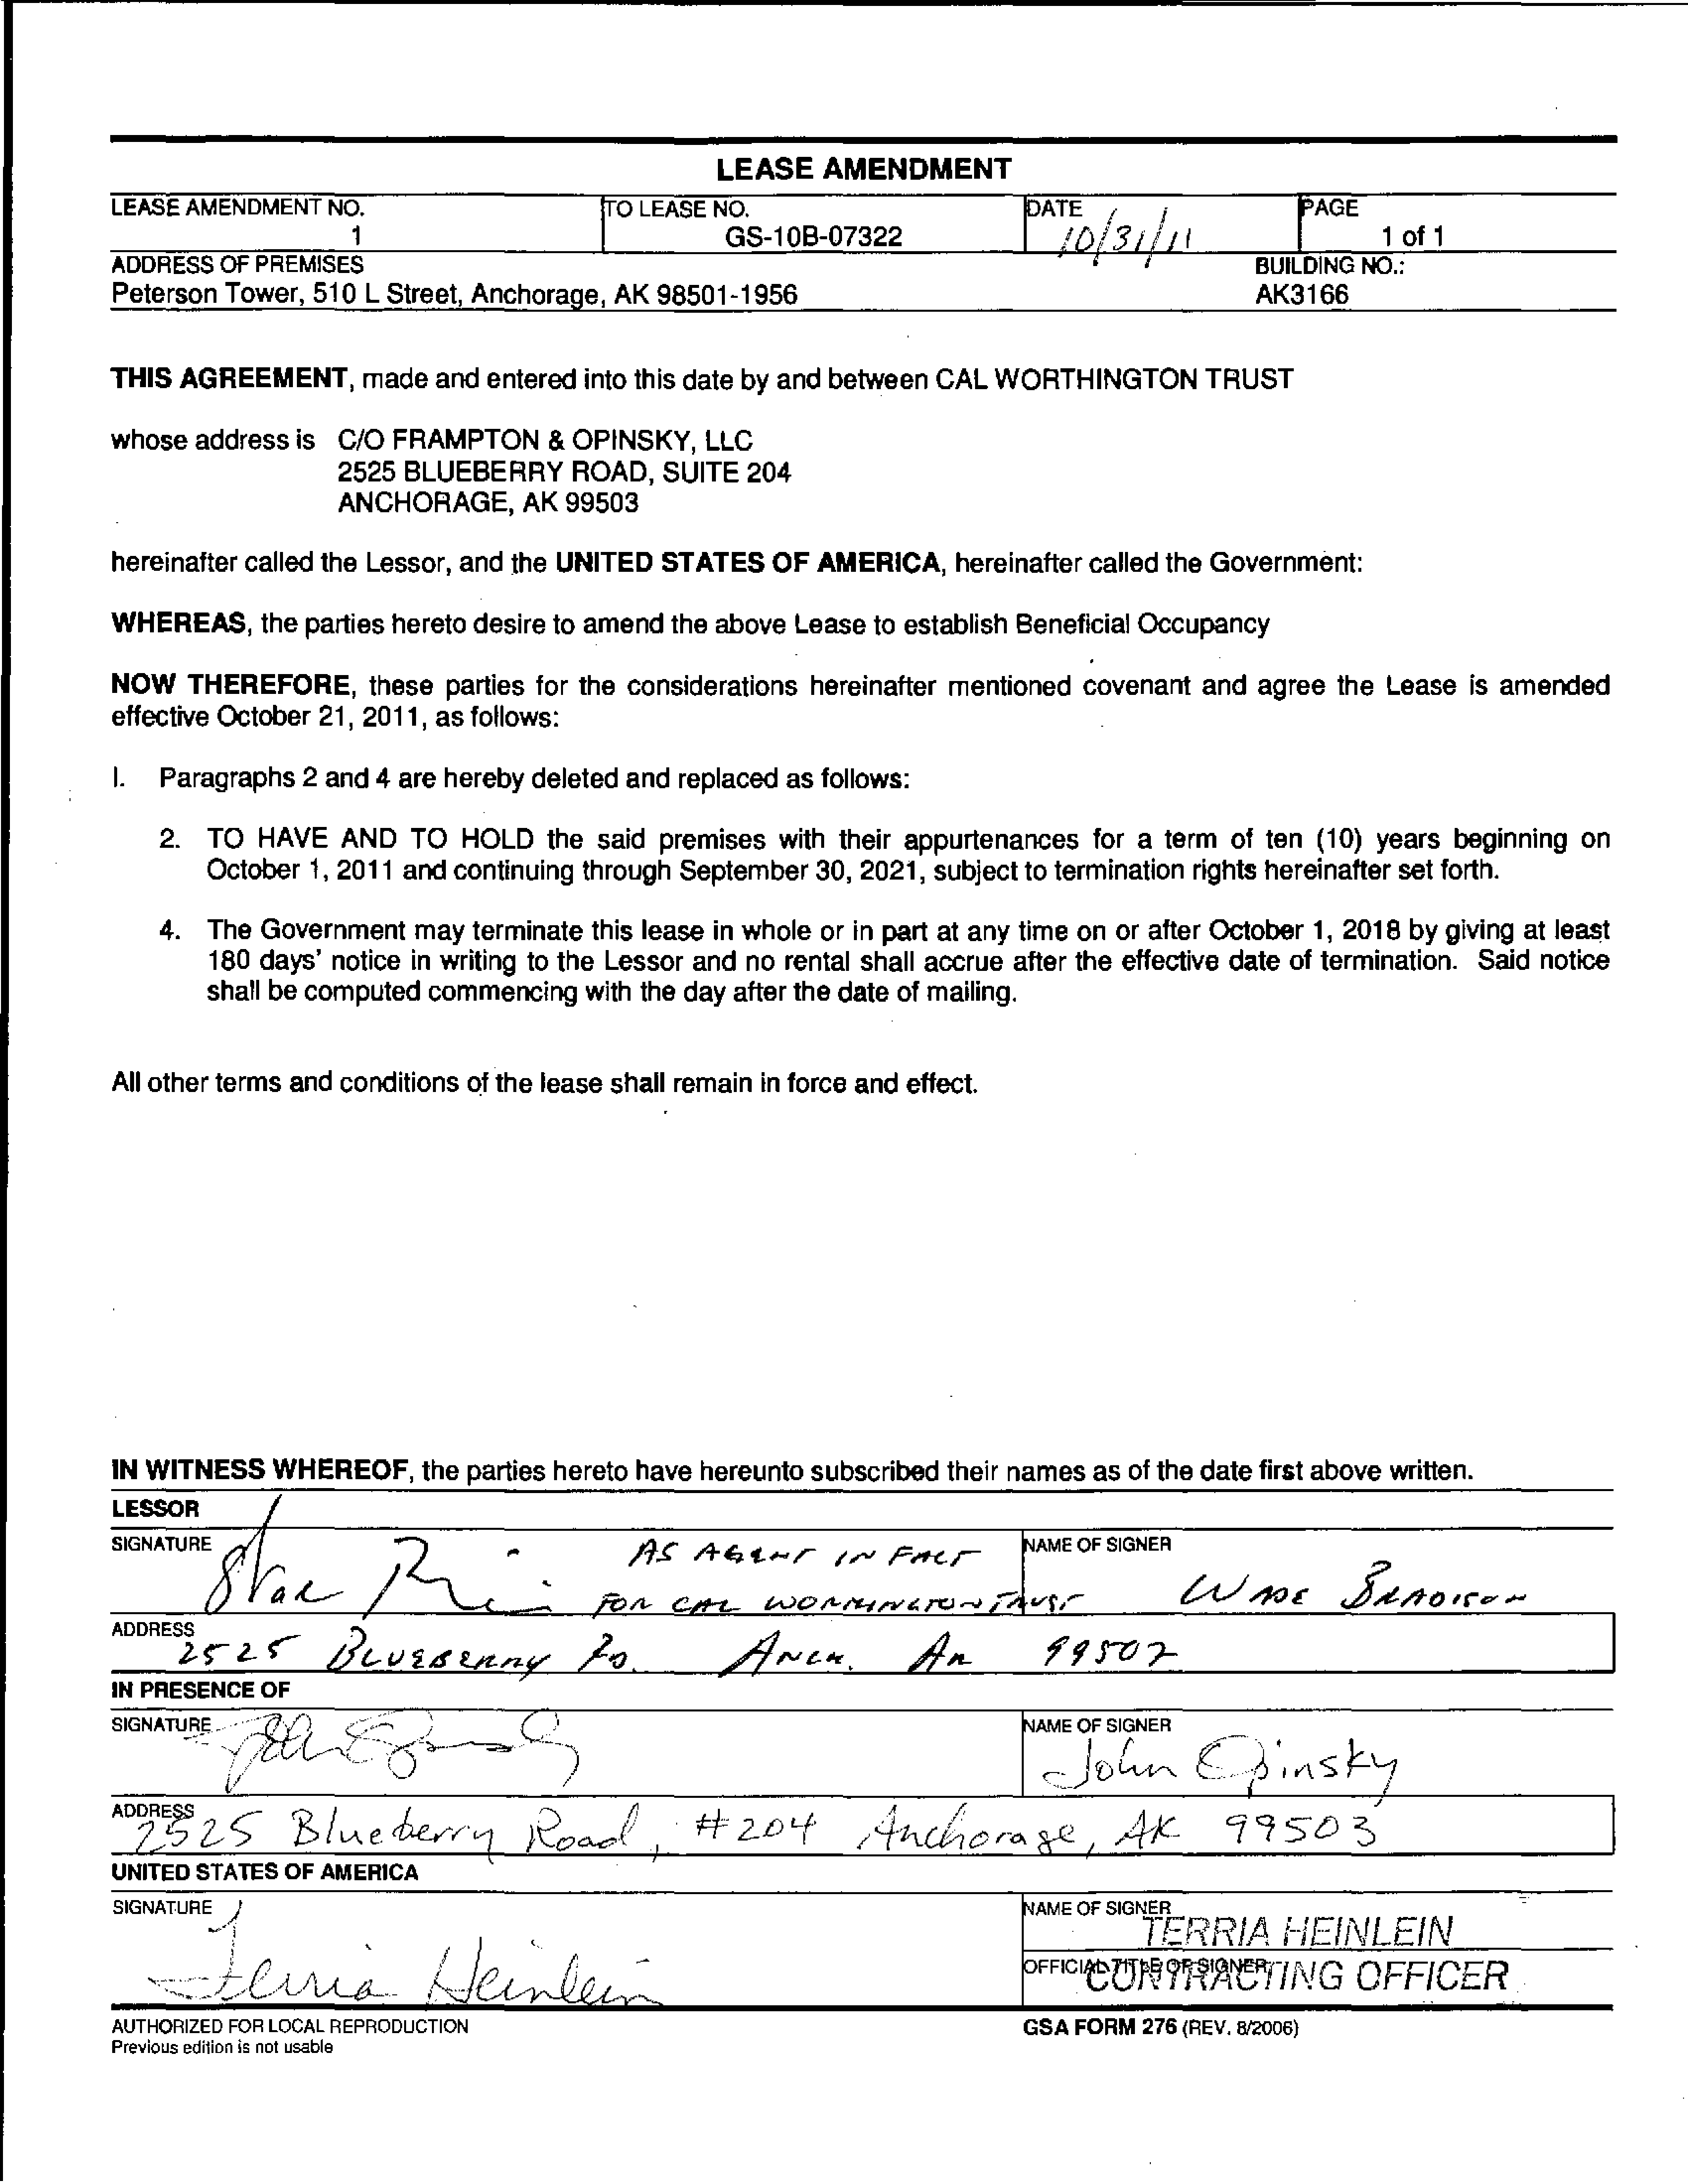 LEASE AMENDMENT
LEASE AMENDMENT NO.
1
TO LEASE NO.
GS-10B-07322
DATE
10/31/11
PAGE
1 of 1
ADDRESS OF PREMISES
Peterson Tower, 510 L Street, Anchorage, AK 98501-1956
BUILDING NO.:
AK3166
THIS AGREEMENT, made and entered into this date by and between CAL WORTHINGTON TRUST
whose address is C/O FRAMPTON & OPINSKY, LLC
2525 BLUEBERRY ROAD, SUITE 204
ANCHORAGE, AK 99503
hereinafter called the Lessor, and the UNITED STATES OF AMERICA, hereinafter called the Government:
WHEREAS, the parties hereto desire to amend the above Lease to establish Beneficial Occupancy
NOW THEREFORE, these parties for the considerations hereinafter mentioned covenant and agree the Lease is amended
effective October 21, 2011, as follows:
I. Paragraphs 2 and 4 are hereby deleted and replaced as follows:
2. TO HAVE AND TO HOLD the said premises with their appurtenances for a term of ten (10) years beginning on
October 1, 2011 and continuing through September 30, 2021, subject to termination rights hereinafter set forth.
4. The Government may terminate this lease in whole or in part at any time on or after October 1, 2018 by giving at least
180 days' notice in writing to the Lessor and no rental shall accrue after the effective date of termination. Said notice
shall be computed commencing with the day after the date of mailing.
All other terms and conditions of the lease shall remain in force and effect.
IN WITNESS WHEREOF, the parties hereto have hereunto subscribed their names as of the date first above written.
LESSOR
SIGNATURE
AS AGENT IN FACT
FOR CAL WORTHINGTON TRUST
NAME OF SIGNER
WADE BRADISON
ADDRESS
2525 BLUEBERRY RD. ANCH. AK 99507
IN PRESENCE OF
SIGNATURE
NAME OF SIGNER
John Opinsky
ADDRESS
2525 Blueberry Road, #204 Anchorage, AK 99503
UNITED STATES OF AMERICA
SIGNATURE
Terria Heinlein
NAME OF SIGNER
TERRIA HEINLEIN
OFFICIAL TITLE OF SIGNER
CONTRACTING OFFICER
AUTHORIZED FOR LOCAL REPRODUCTION
Previous edition is not usable
GSA FORM 276 (REV. 8/2006)